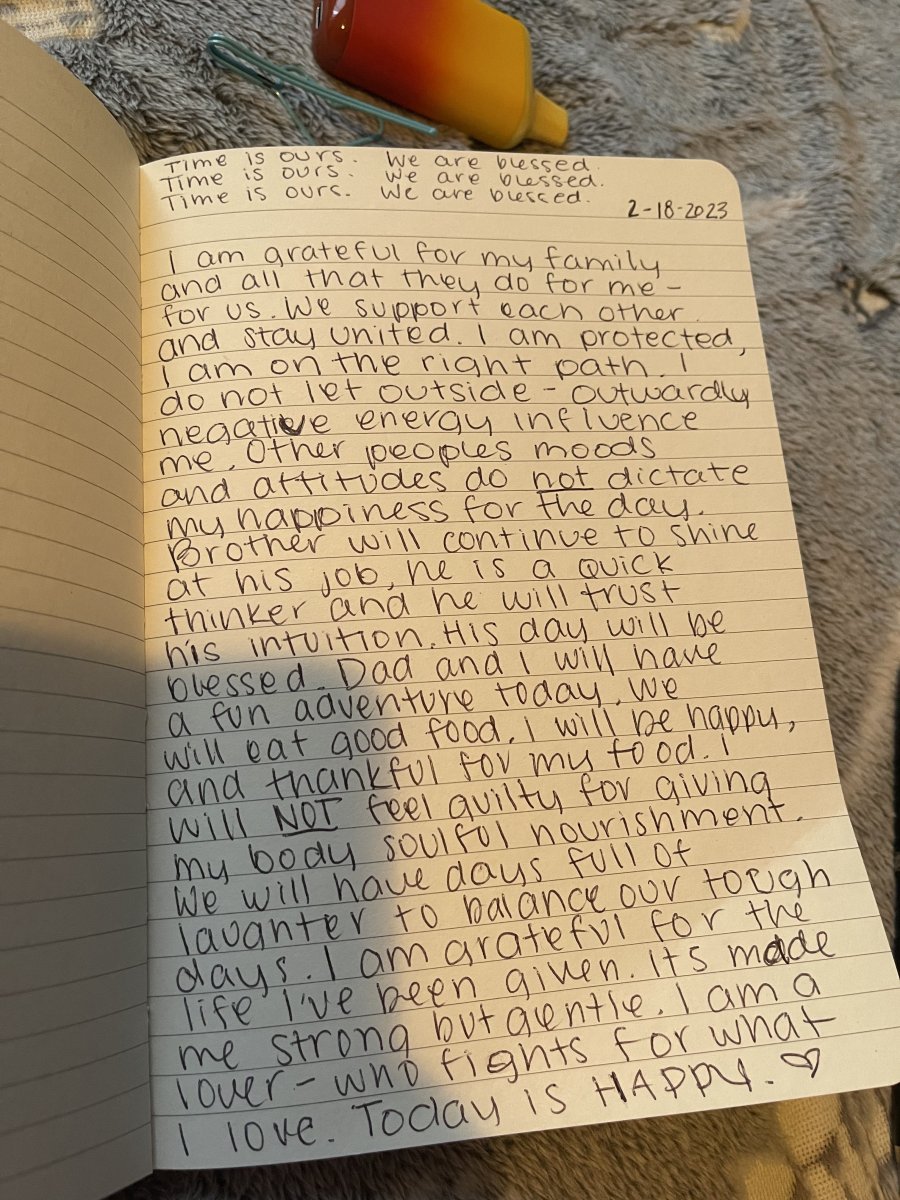 Time is ours. We are blessed.
Time is ours. We are blessed.
Time is ours. We are blessed.
2-18-2023
I am grateful for my family
and all that they do for me -
for us. We support each other
and stay united. I am protected,
I am on the right path. I
do not let outside - outwardly
negative energy influence
me. Other peoples moods
and attitudes do not dictate
my happiness for the day.
Brother will continue to shine
at his job, he is a quick
thinker and he will trust
his intuition. His day will be
blessed. Dad and I will have
a fun adventure today. We
will eat good food. I will be happy,
and thankful for my food. I
will NOT feel guilty for giving
my body soulful nourishment.
We will have days full of
laughter to balance our tough
days. I am grateful for the
life I've been given. Its made
me strong but gentle. I am a
lover - who fights for what
I love. Today is HAPPY. ♡